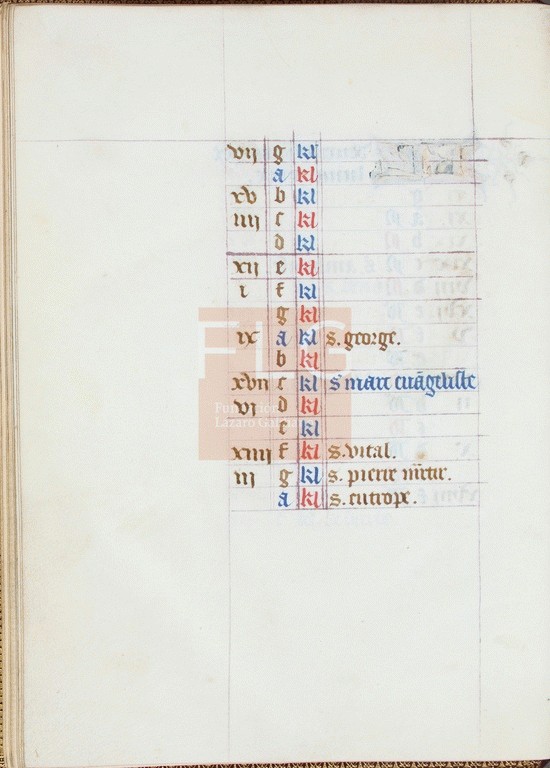 vij g kl
a kl
xv b kl
iiij c kl
d kl
xij e kl
i f kl
g kl
ix a kl s. george.
b kl
xvij c kl s marc euãgeliste
vj d kl
e kl
xiiij f kl s. vital.
iij g kl s. pierre mr̃tir.
a kl s. eutrope.
FLG
Fundación
Lázaro Galdiano